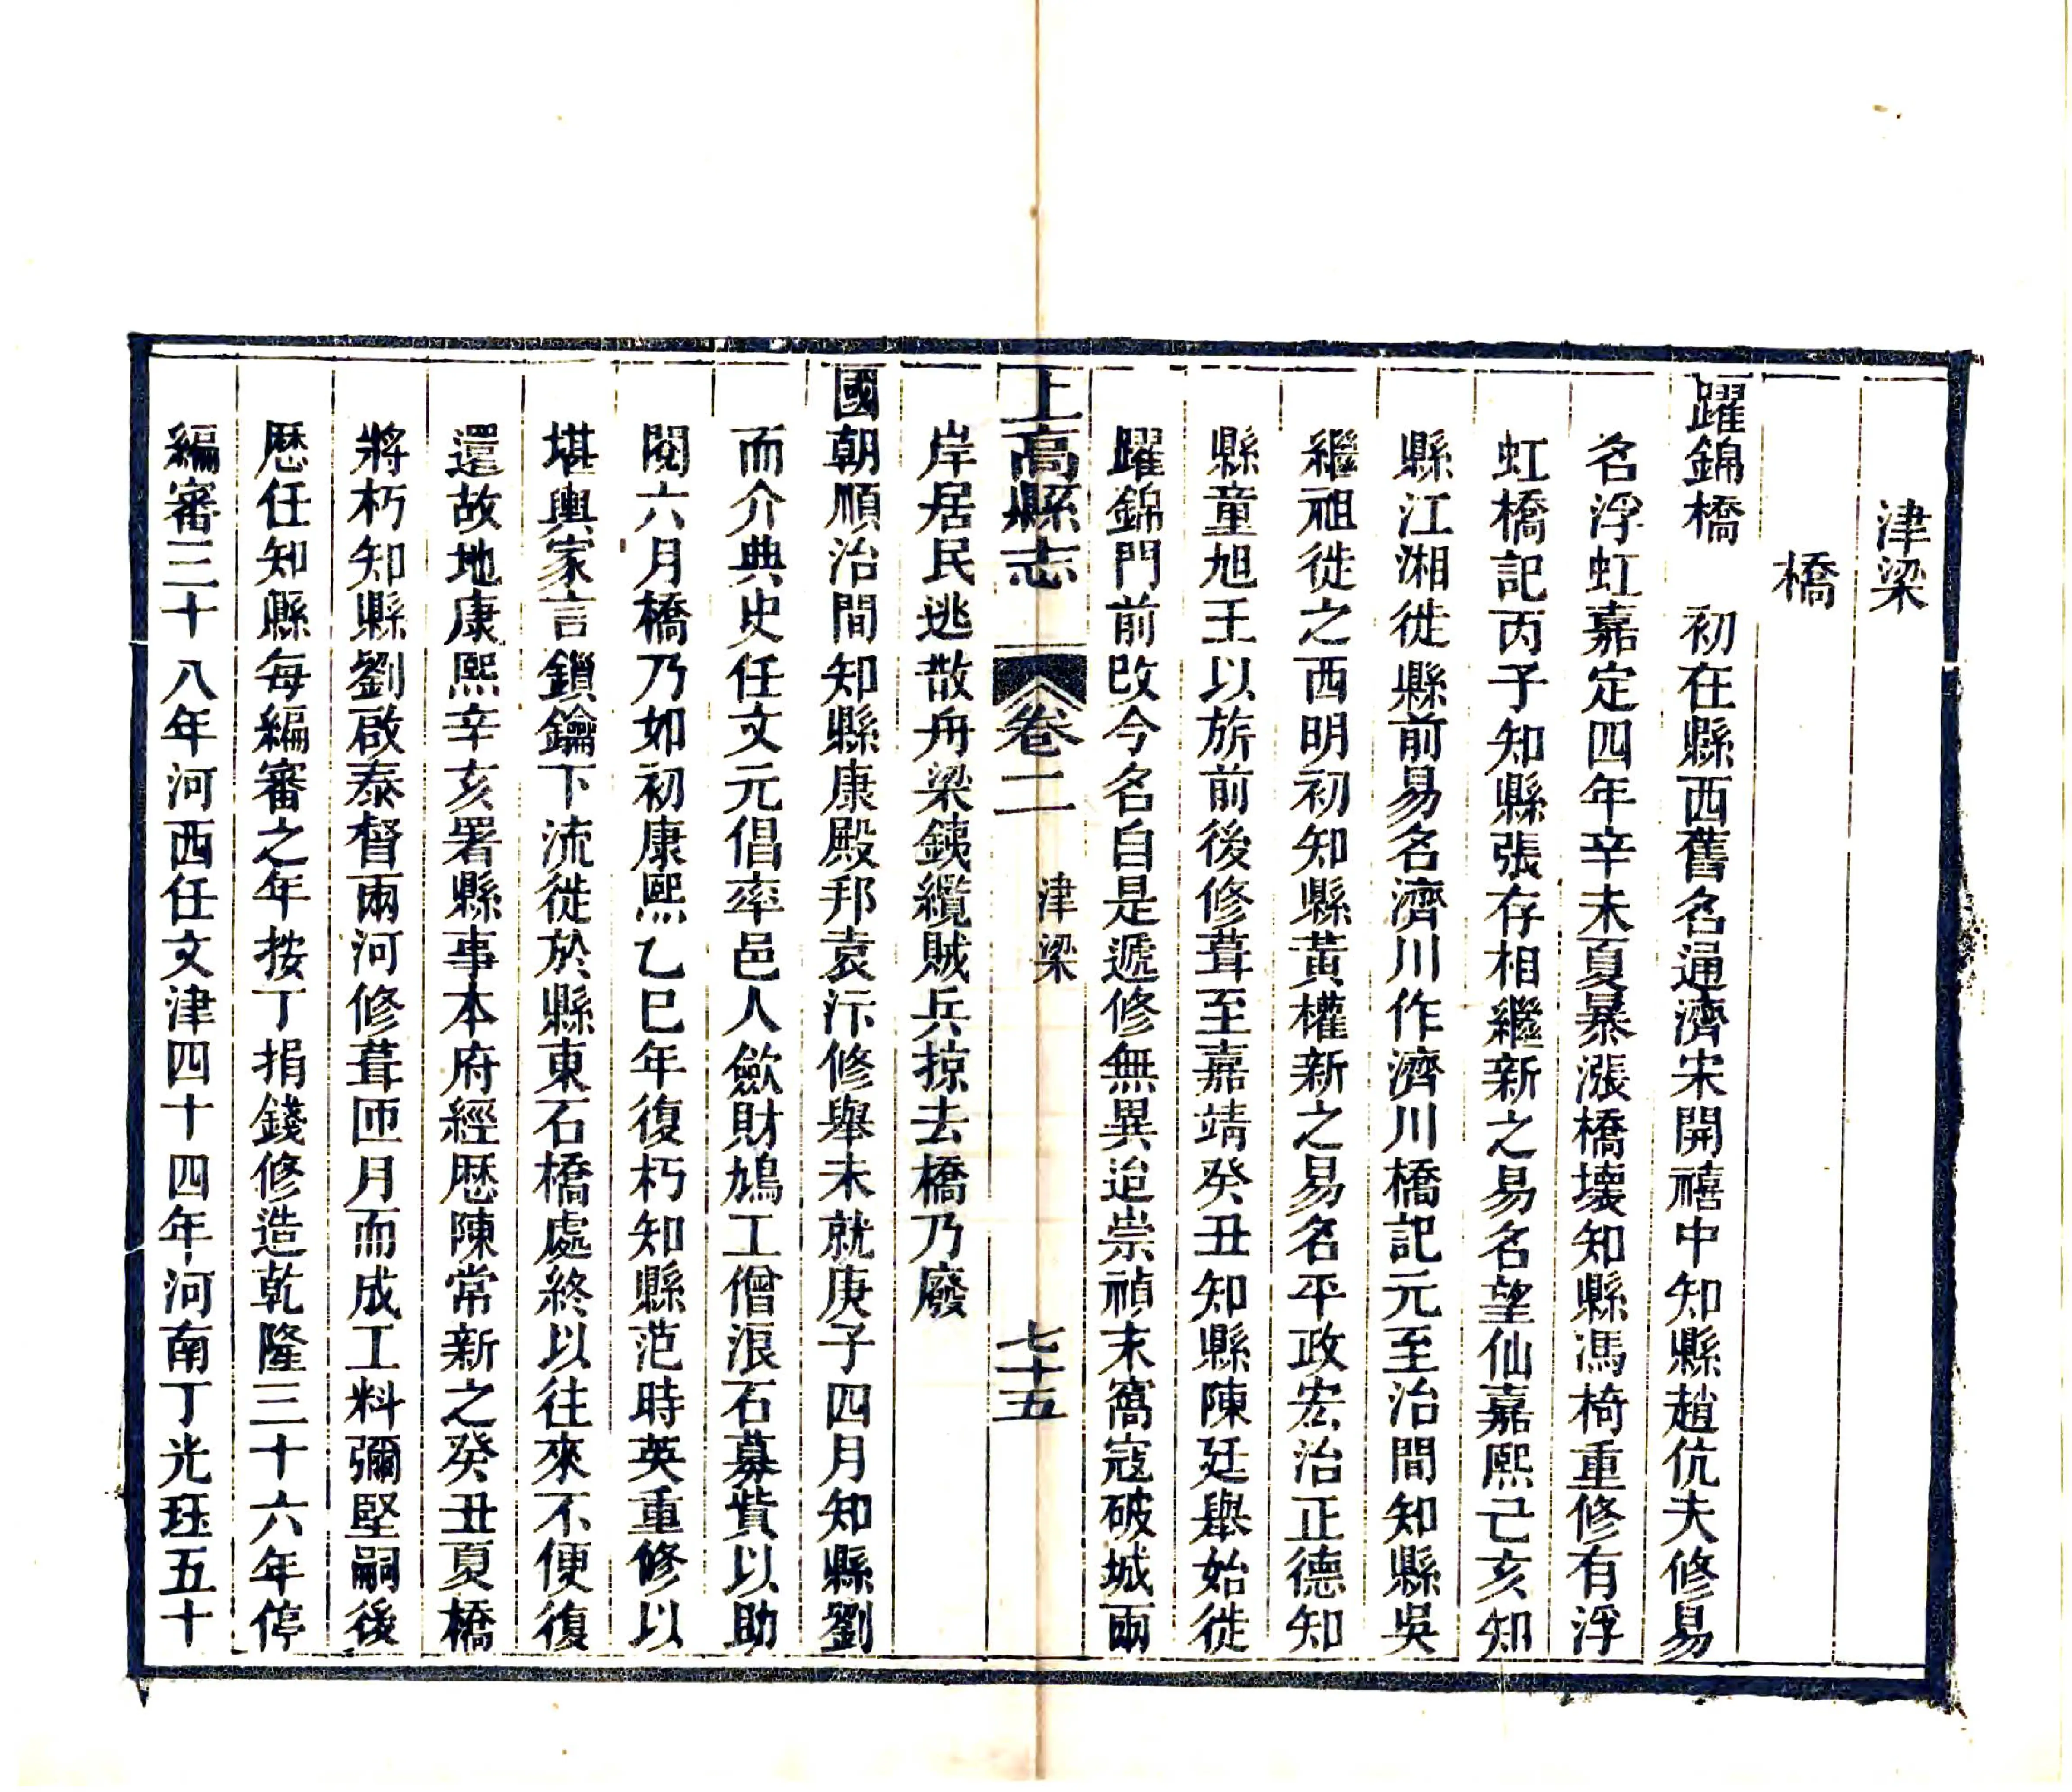 津梁
橋
躍錦橋　初在縣西舊名通濟宋開禧中知縣趙伉夫修易
名浮虹嘉定四年辛未夏暴漲橋壞知縣馮椅重修有浮
虹橋記丙子知縣張存相繼新之易名望仙嘉熙己亥知
縣江湘徙縣前易名濟川作濟川橋記元至治間知縣吳
繼祖徙之西明初知縣黃權新之易名平政宏治正德知
縣童旭王以旂前後修葺至嘉靖癸丑知縣陳廷舉始徙
躍錦門前改今名自是遞修無異迨崇禎末窩寇破城兩
岸居民逃散舟梁銕纜賊兵掠去橋乃廢
上高縣志　卷二　津梁　七十五
國朝順治間知縣康殿邦袁泝修舉未就庚子四月知縣劉
而介典史任文元倡率邑人歛財鳩工僧浪石募貲以助
閱六月橋乃如初康熙乙巳年復朽知縣范時英重修以
堪輿家言鎖鑰下流徙於縣東石橋處終以往來不便復
還故地康熙辛亥署縣事本府經歷陳常新之癸丑夏橋
將朽知縣劉啟泰督兩河修葺匝月而成工料彌堅嗣後
歷任知縣每編審之年按丁捐錢修造乾隆三十六年停
編審三十八年河西任文津四十四年河南丁光珏五十